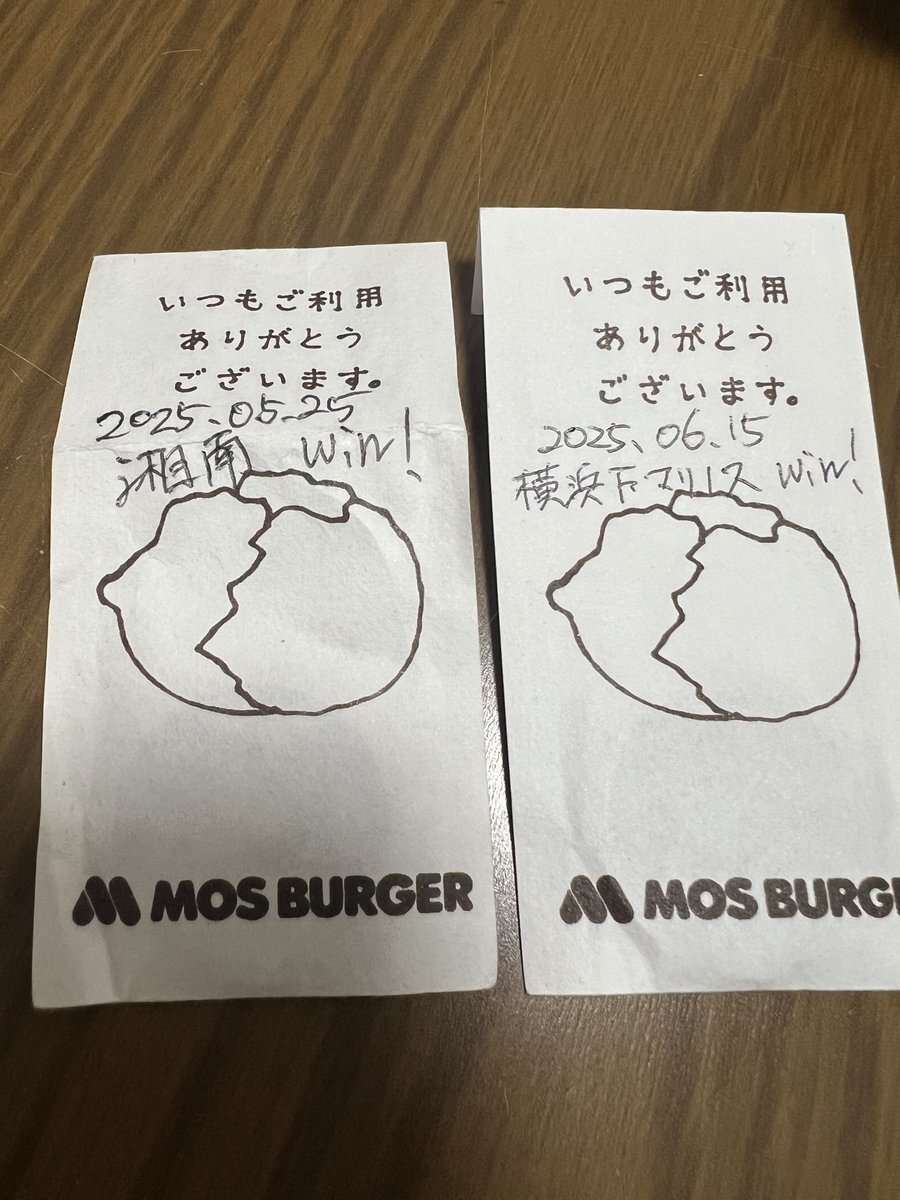 いつもご利用
ありがとう
ございます。
2025.05.25
湘南 win!
MOS BURGER
いつもご利用
ありがとう
ございます。
2025.06.15
横浜Fマリノス win!
MOS BURGE